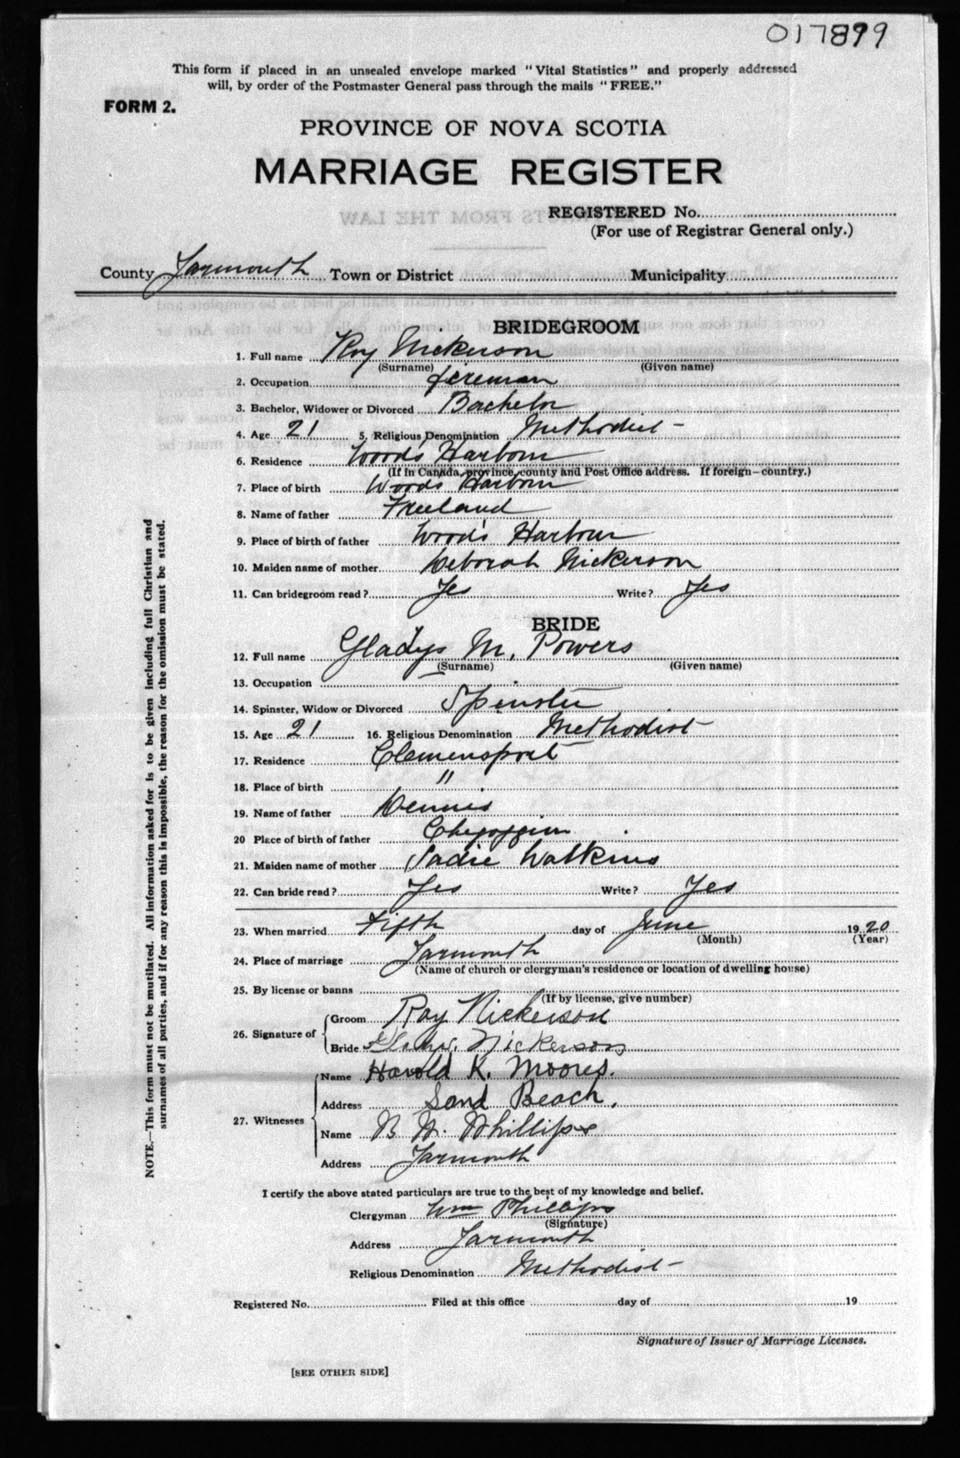 017899
This form if placed in an unsealed envelope marked "Vital Statistics" and properly addressed
will, by order of the Postmaster General pass through the mails "FREE."
FORM 2.
PROVINCE OF NOVA SCOTIA
MARRIAGE REGISTER
REGISTERED No.
(For use of Registrar General only.)
County Yarmouth Town or District Municipality
BRIDEGROOM
1. Full name Roy Nickerson
(Surname) (Given name)
2. Occupation fireman
3. Bachelor, Widower or Divorced Bachelor
4. Age 21 5. Religious Denomination Methodist
6. Residence Woods Harbour
(If in Canada, province, county and Post Office address. If foreign—country.)
7. Place of birth Woods Harbour
8. Name of father Freeland
9. Place of birth of father Wood's Harbour
10. Maiden name of mother Deborah Nickerson
11. Can bridegroom read? Yes Write? Yes
BRIDE
12. Full name Gladys M. Powers
(Surname) (Given name)
13. Occupation
14. Spinster, Widow or Divorced Spinster
15. Age 21 16. Religious Denomination Methodist
17. Residence Clemensport
18. Place of birth "
19. Name of father Dennis
20 Place of birth of father
21. Maiden name of mother Sadie Watkins
22. Can bride read? Yes Write? Yes
23. When married Fifth day of June 1920
(Month) (Year)
24. Place of marriage Yarmouth
(Name of church or clergyman's residence or location of dwelling house)
25. By license or banns
(If by license, give number)
26. Signature of Groom Roy Nickerson
Bride Nickerson
27. Witnesses Name Harold K. Moores.
Address Sand Beach.
Name Phillips
Address Yarmouth
I certify the above stated particulars are true to the best of my knowledge and belief.
Clergyman Wm Phillips
(Signature)
Address Yarmouth
Religious Denomination Methodist
Registered No. Filed at this office day of 19
Signature of Issuer of Marriage Licenses.
[SEE OTHER SIDE]
NOTE.—This form must not be mutilated. All information asked for is to be given including full Christian and
surnames of all parties, and if for any reason this is impossible, the reason for the omission must be stated.